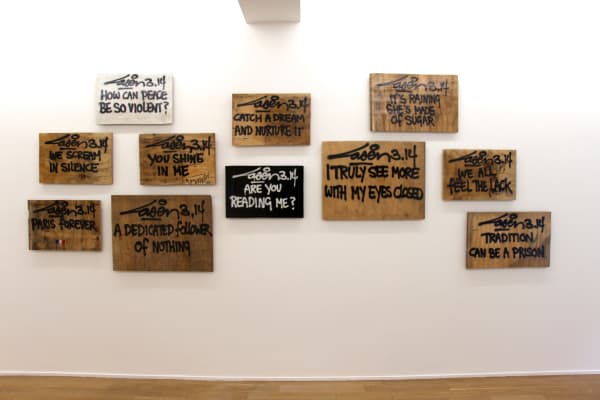 Laser 3.14
HOW CAN PEACE
BE SO VIOLENT?
Laser 3.14
WE SCREAM
IN SILENCE
Laser 3.14
YOU SHINE
IN ME
Laser 3.14
PARIS FOREVER
Laser 3.14
A DEDICATED FOLLOWER
OF NOTHING
Laser 3.14
CATCH A DREAM
AND NURTURE IT
Laser 3.14
ARE YOU
READING ME?
Laser 3.14
I TRULY SEE MORE
WITH MY EYES CLOSED
Laser 3.14
IT'S RAINING
SHE'S MADE
OF SUGAR
Laser 3.14
WE ALL
FEEL THE LACK
Laser 3.14
TRADITION
CAN BE A PRISON